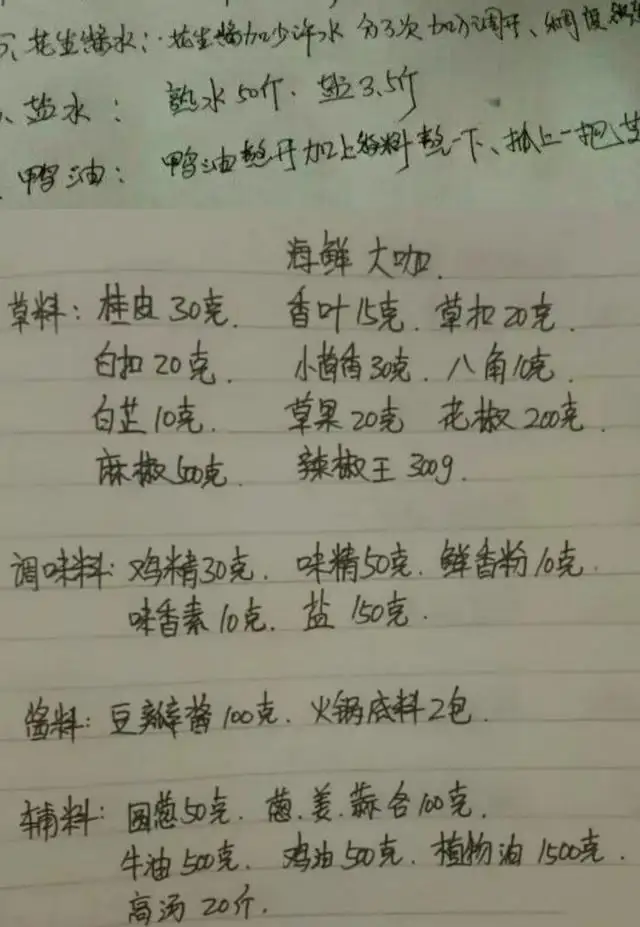 花生酱水：花生酱加少许水 分3次加水调开、稠度
盐水：熟水50斤、盐3.5斤
鸭油：鸭油熬开加上香料熬一下、抓上一把
海鲜大咖.
草料：桂皮30克. 香叶15克. 草扣20克.
白扣20克. 小茴香30克. 八角10克.
白芷10克. 草果20克 花椒200克.
麻椒500克. 辣椒王300g.
调味料：鸡精30克. 味精50克. 鲜香粉10克.
味香素10克. 盐150克.
酱料：豆瓣酱100克. 火锅底料2包.
辅料：圆葱50克. 葱.姜.蒜各100克.
牛油500克. 鸡油500克. 植物油1500克.
高汤20斤.